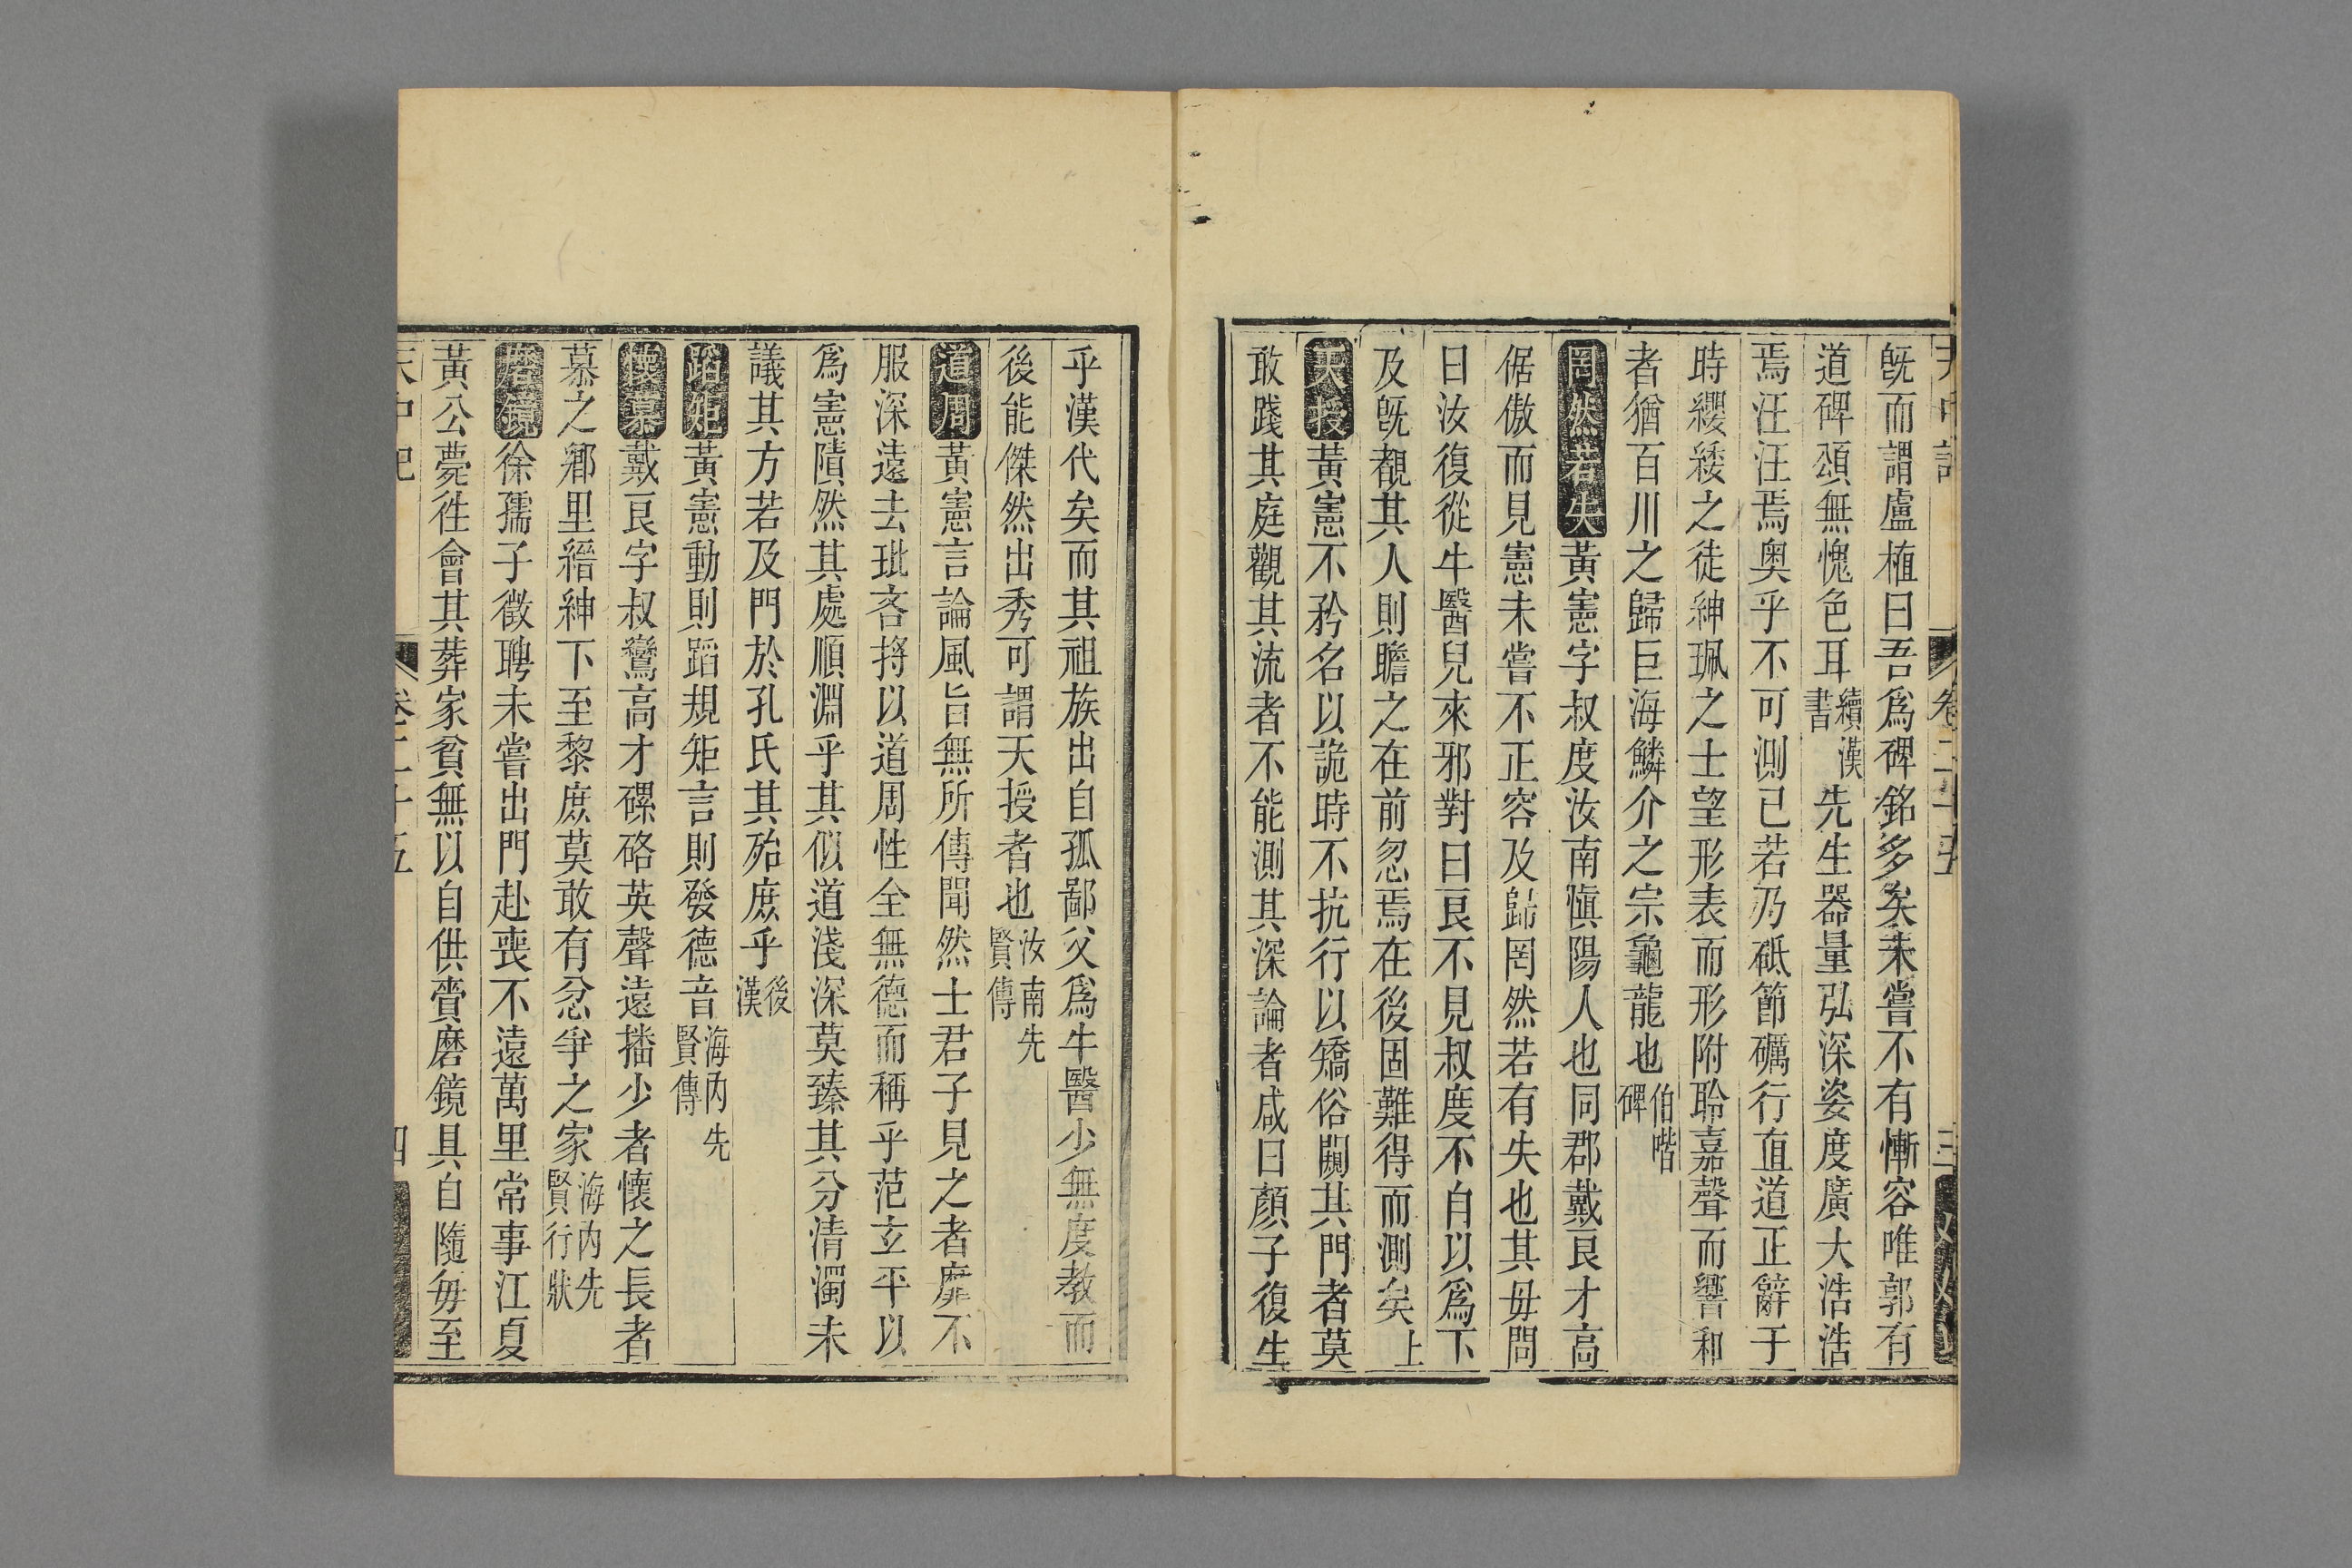 天中記 卷二十五 三
旣而謂盧植曰吾爲碑銘多矣未嘗不有慚容唯郭有
道碑頌無愧色耳續漢書先生器量弘深姿度廣大浩浩
焉汪汪焉奥乎不可測已若乃砥節礪行直道正辭于
時纓緌之徒紳珮之士望形表而形附聆嘉聲而響和
者猶百川之歸巨海鱗介之宗龜龍也伯喈碑
罔然若失黃憲字叔度汝南愼陽人也同郡戴良才高
倨傲而見憲未嘗不正容及歸罔然若有失也其母問
曰汝復從牛醫兒來邪對曰良不見叔度不自以爲不
及旣覩其人則瞻之在前忽焉在後固難得而測矣上
天授黃憲不矜名以詭時不抗行以矯俗闚其門者莫
敢踐其庭觀其流者不能測其深論者咸曰顏子復生
乎漢代矣而其祖族出自孤鄙父爲牛醫少無度教而
後能傑然出秀可謂天授者也汝南先賢傳
道周黃憲言論風旨無所傳聞然士君子見之者靡不
服深遠去玼吝將以道周性全無德而稱乎范玄平以
爲憲隤然其處順淵乎其似道淺深莫臻其分清濁未
議其方若及門於孔氏其殆庶乎後漢
蹈矩黃憲動則蹈規矩言則發德音海內先賢傳
懷慕戴良字叔鸞高才磥硌英聲遠播少者懷之長者
慕之鄉里縉紳下至黎庶莫敢有忿爭之家海內先賢行狀
磨鏡徐孺子徵聘未嘗出門赴喪不遠萬里常事江夏
黃公薨徃會其葬家貧無以自供賫磨鏡具自隨每至
天中記 卷二十五 四